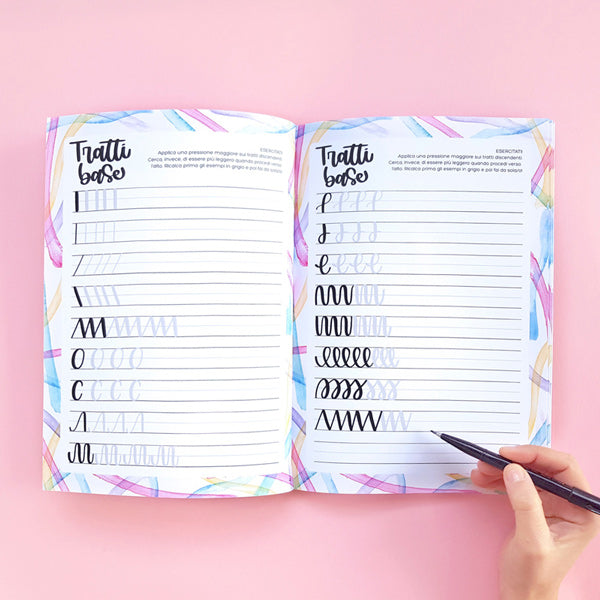 Tratti
base
ESERCITATI
Applica una pressione maggiore sui tratti discendenti
Cerca, invece, di essere più leggero quando procedi verso
l'alto. Ricalca prima gli esempi in grigio e poi fai da solo/a!
O C C C C
C C C C
Tratti
base
ESERCITATI
Applica una pressione maggiore sui tratti discendenti
Cerca, invece, di essere più leggero quando procedi verso
l'alto. Ricalca prima gli esempi in grigio e poi fai da solo/a!